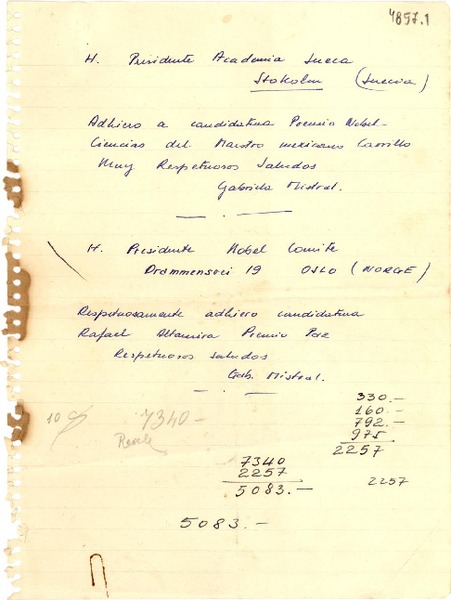 4857.1
H. Presidente Academia Sueca
Stokolm (Suecia)
Adhiero a candidatura Premio Nobel-
Ciencias del Maestro mexicano Carrillo
Muy Respetuosos Saludos
Gabriela Mistral.
H. Presidente Nobel Comite
Drammensvei 19 OSLO (NORGE)
Respetuosamente adhiero candidatura
Rafael Altamira Premio Paz
Respetuosos saludos
Gab. Mistral.
330.-
160.-
792.-
975
2257
10
7340-
7340
2257
5083.-
2257
5083.-